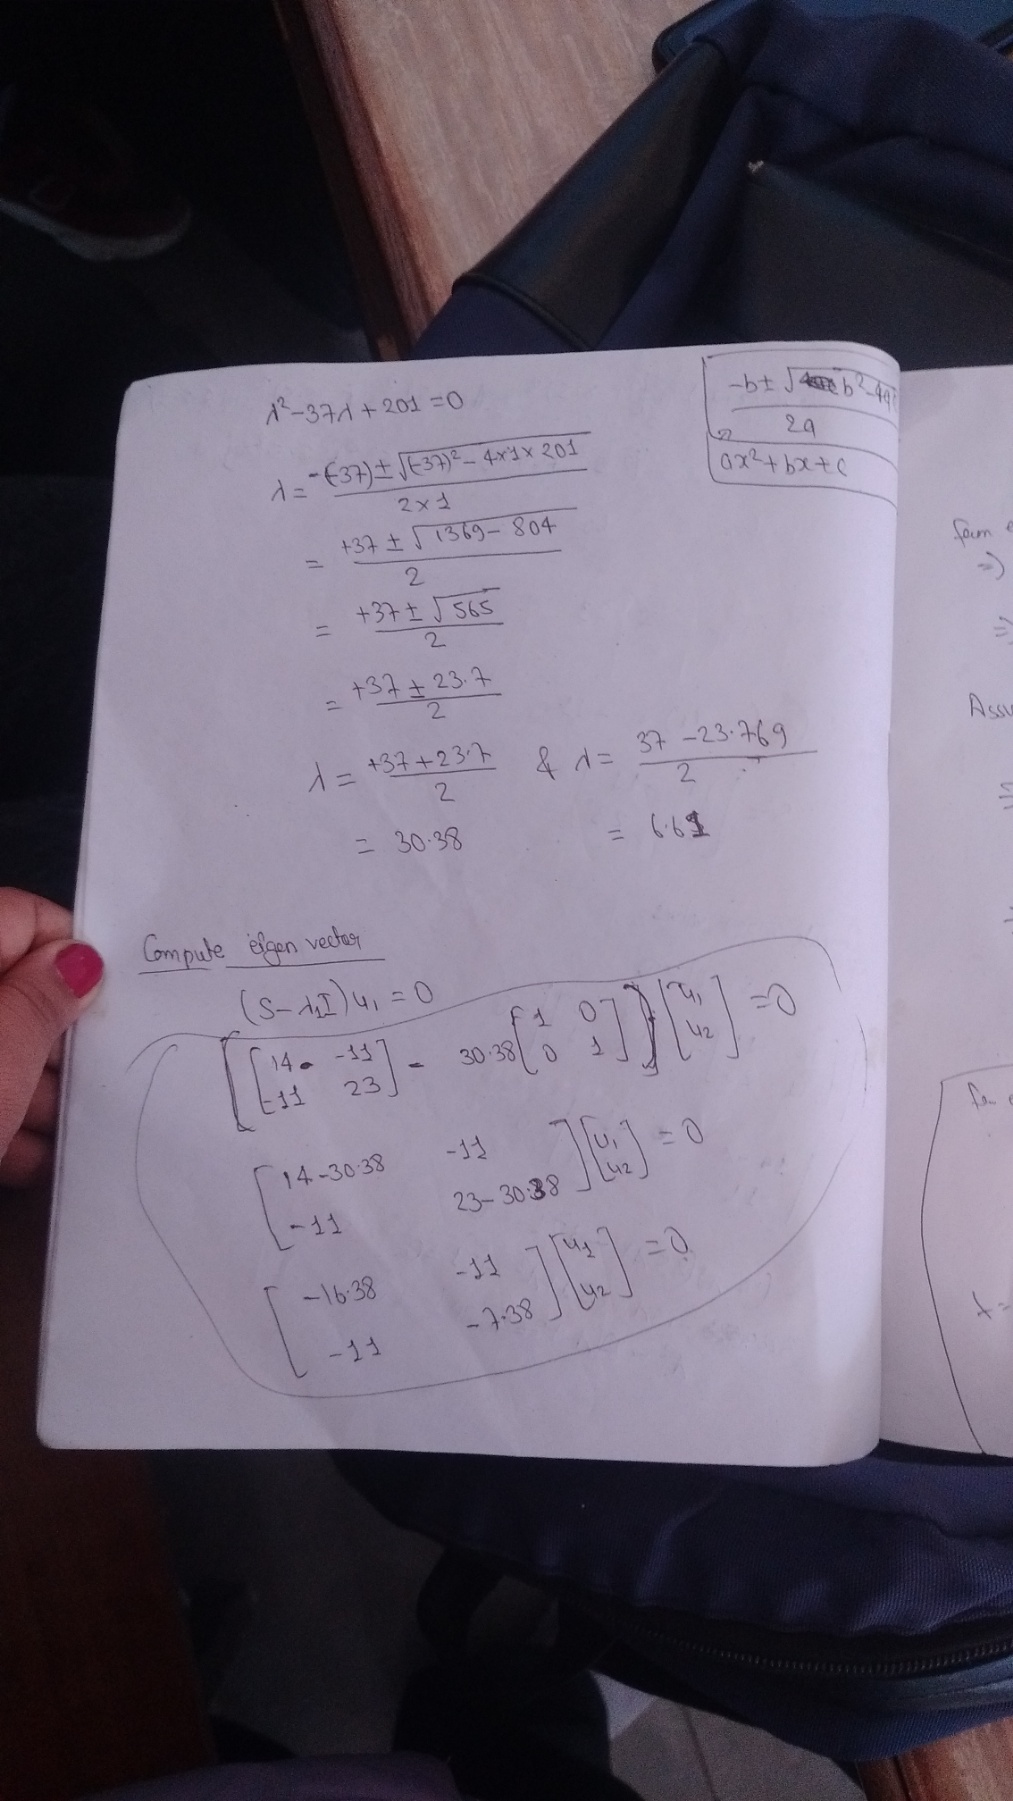 -b ± √b²-4a
2a
ax²+bx+c
λ²-37λ+201=0
λ = -(-37)±√(-37)²-4×1×201
2×1
= +37 ± √1369-804
2
= +37 ± √565
2
= +37 ± 23.7
2
λ = +37+23.7 & λ = 37-23.769
2 2
= 30.38 = 6.61
Compute eigen vector
(S-λ1I)u₁ = 0
[[14 -11 -11 23] - 30.38 [1 0 0 1]] [u₁ u₂] = 0
[14-30.38 -11 -11 23-30.38] [u₁ u₂] = 0
[-16.38 -11 -11 -7.38] [u1 u2] = 0
=)
Assu
λ =